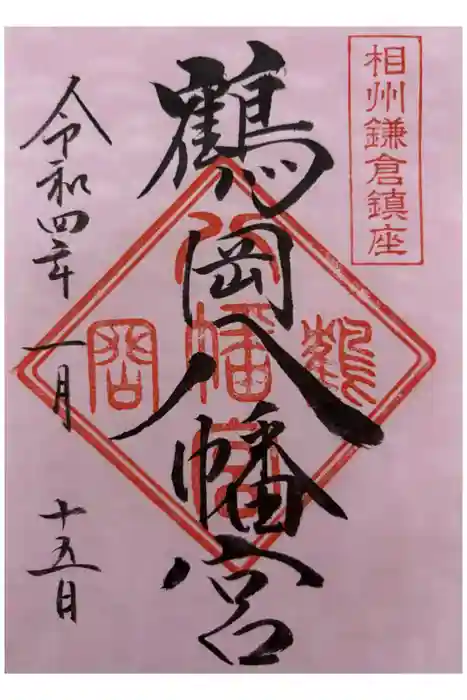 相州鎌倉鎮座
鶴岡八幡宮
鶴
八幡宮
岡
令和四年
一月
十五日